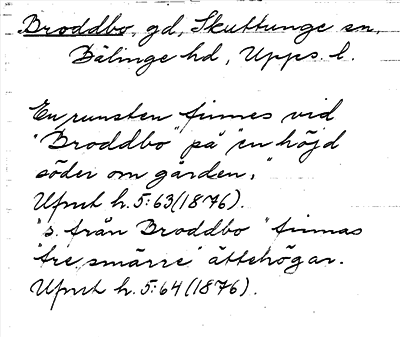 Broddbo, gd, Skuttunge sn,
Bälinge hd, Upps. l.
En runsten finnes vid
"Broddbo" på "en höjd
söder om gården."
Ufmt h. 5:63 (1876).
"s. från Broddbo" finnas
"tre smärre" ättehögar.
Ufmt h. 5:64 (1876).